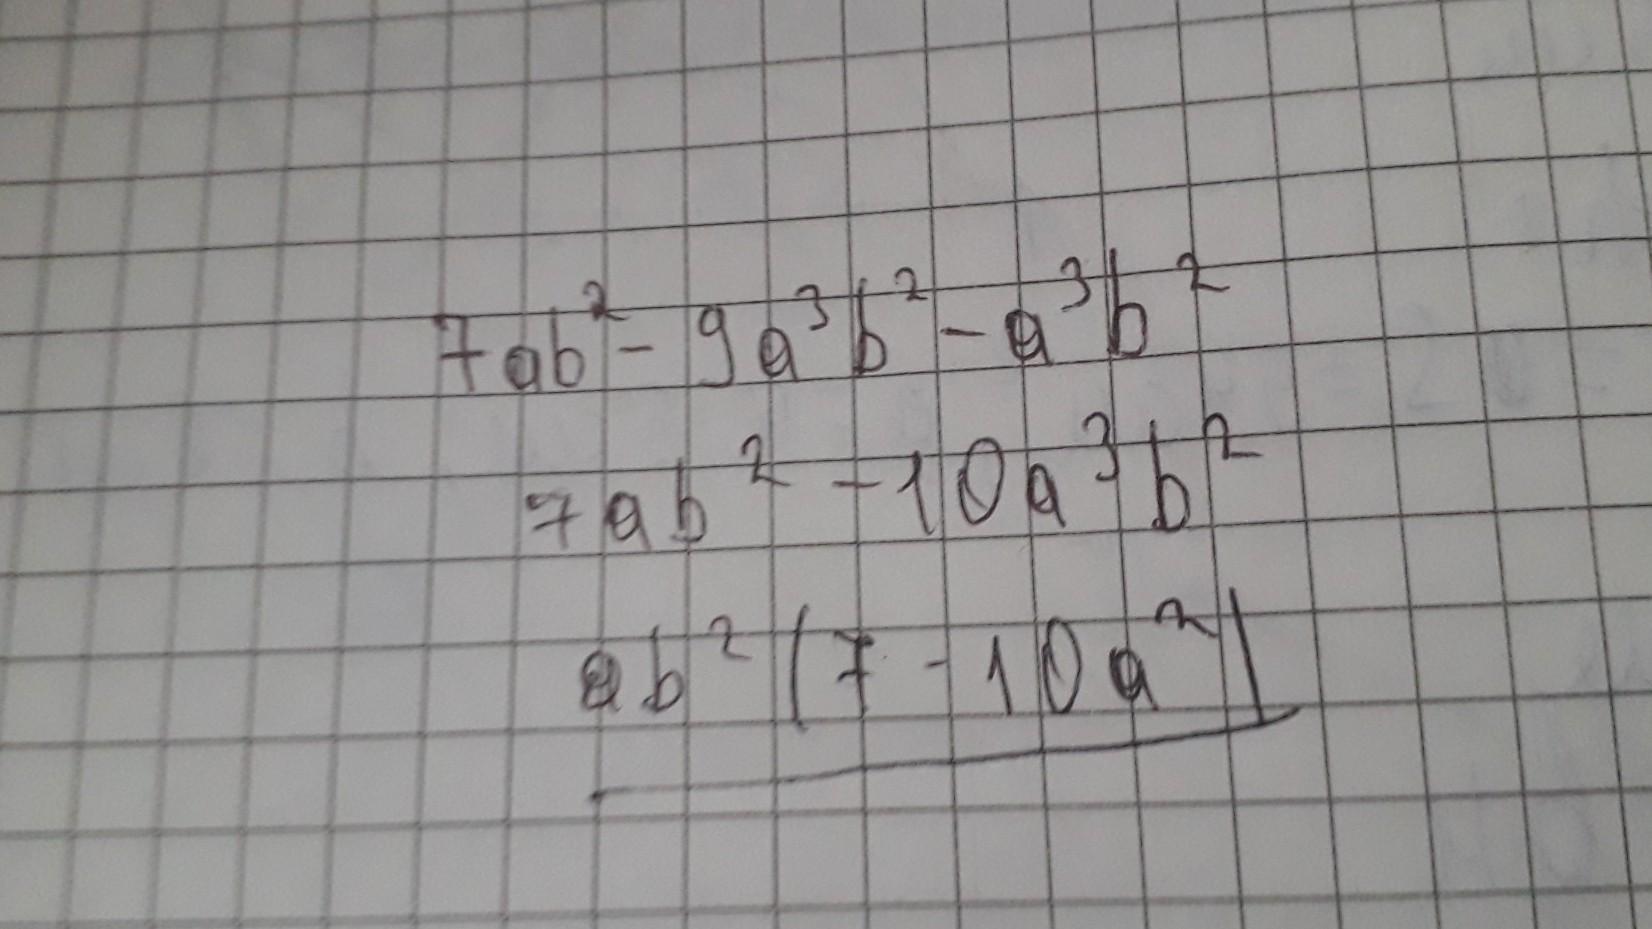 7ab² - 9a³b² - a³b²
7ab² - 10a³b²
ab² (7 - 10a²)